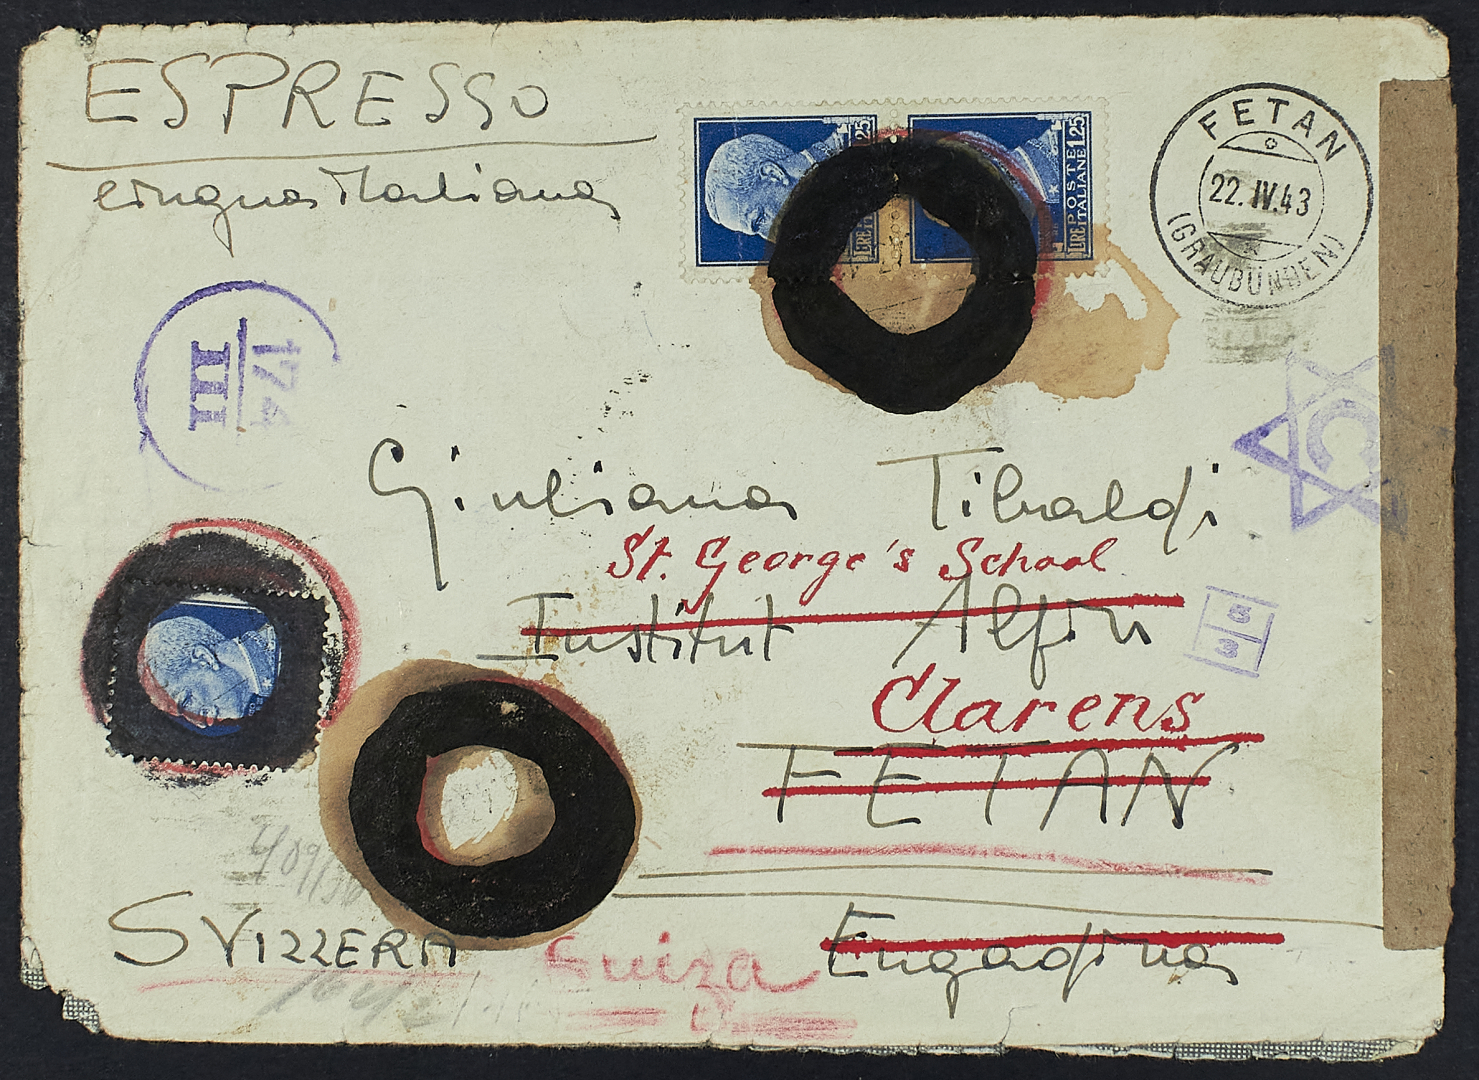 ESPRESSO
Lingua Italiana
1,25
1,25
POSTE
ITALIANE
LIRE
LIRE
FETAN
22.IV.43
(GRAUBÜNDEN)
174
III
C
Giuliana Tibaldi
St. George's School
Institut Alpin
3
3
Clarens
FETAN
SVIZZERA
Suiza
Engadina